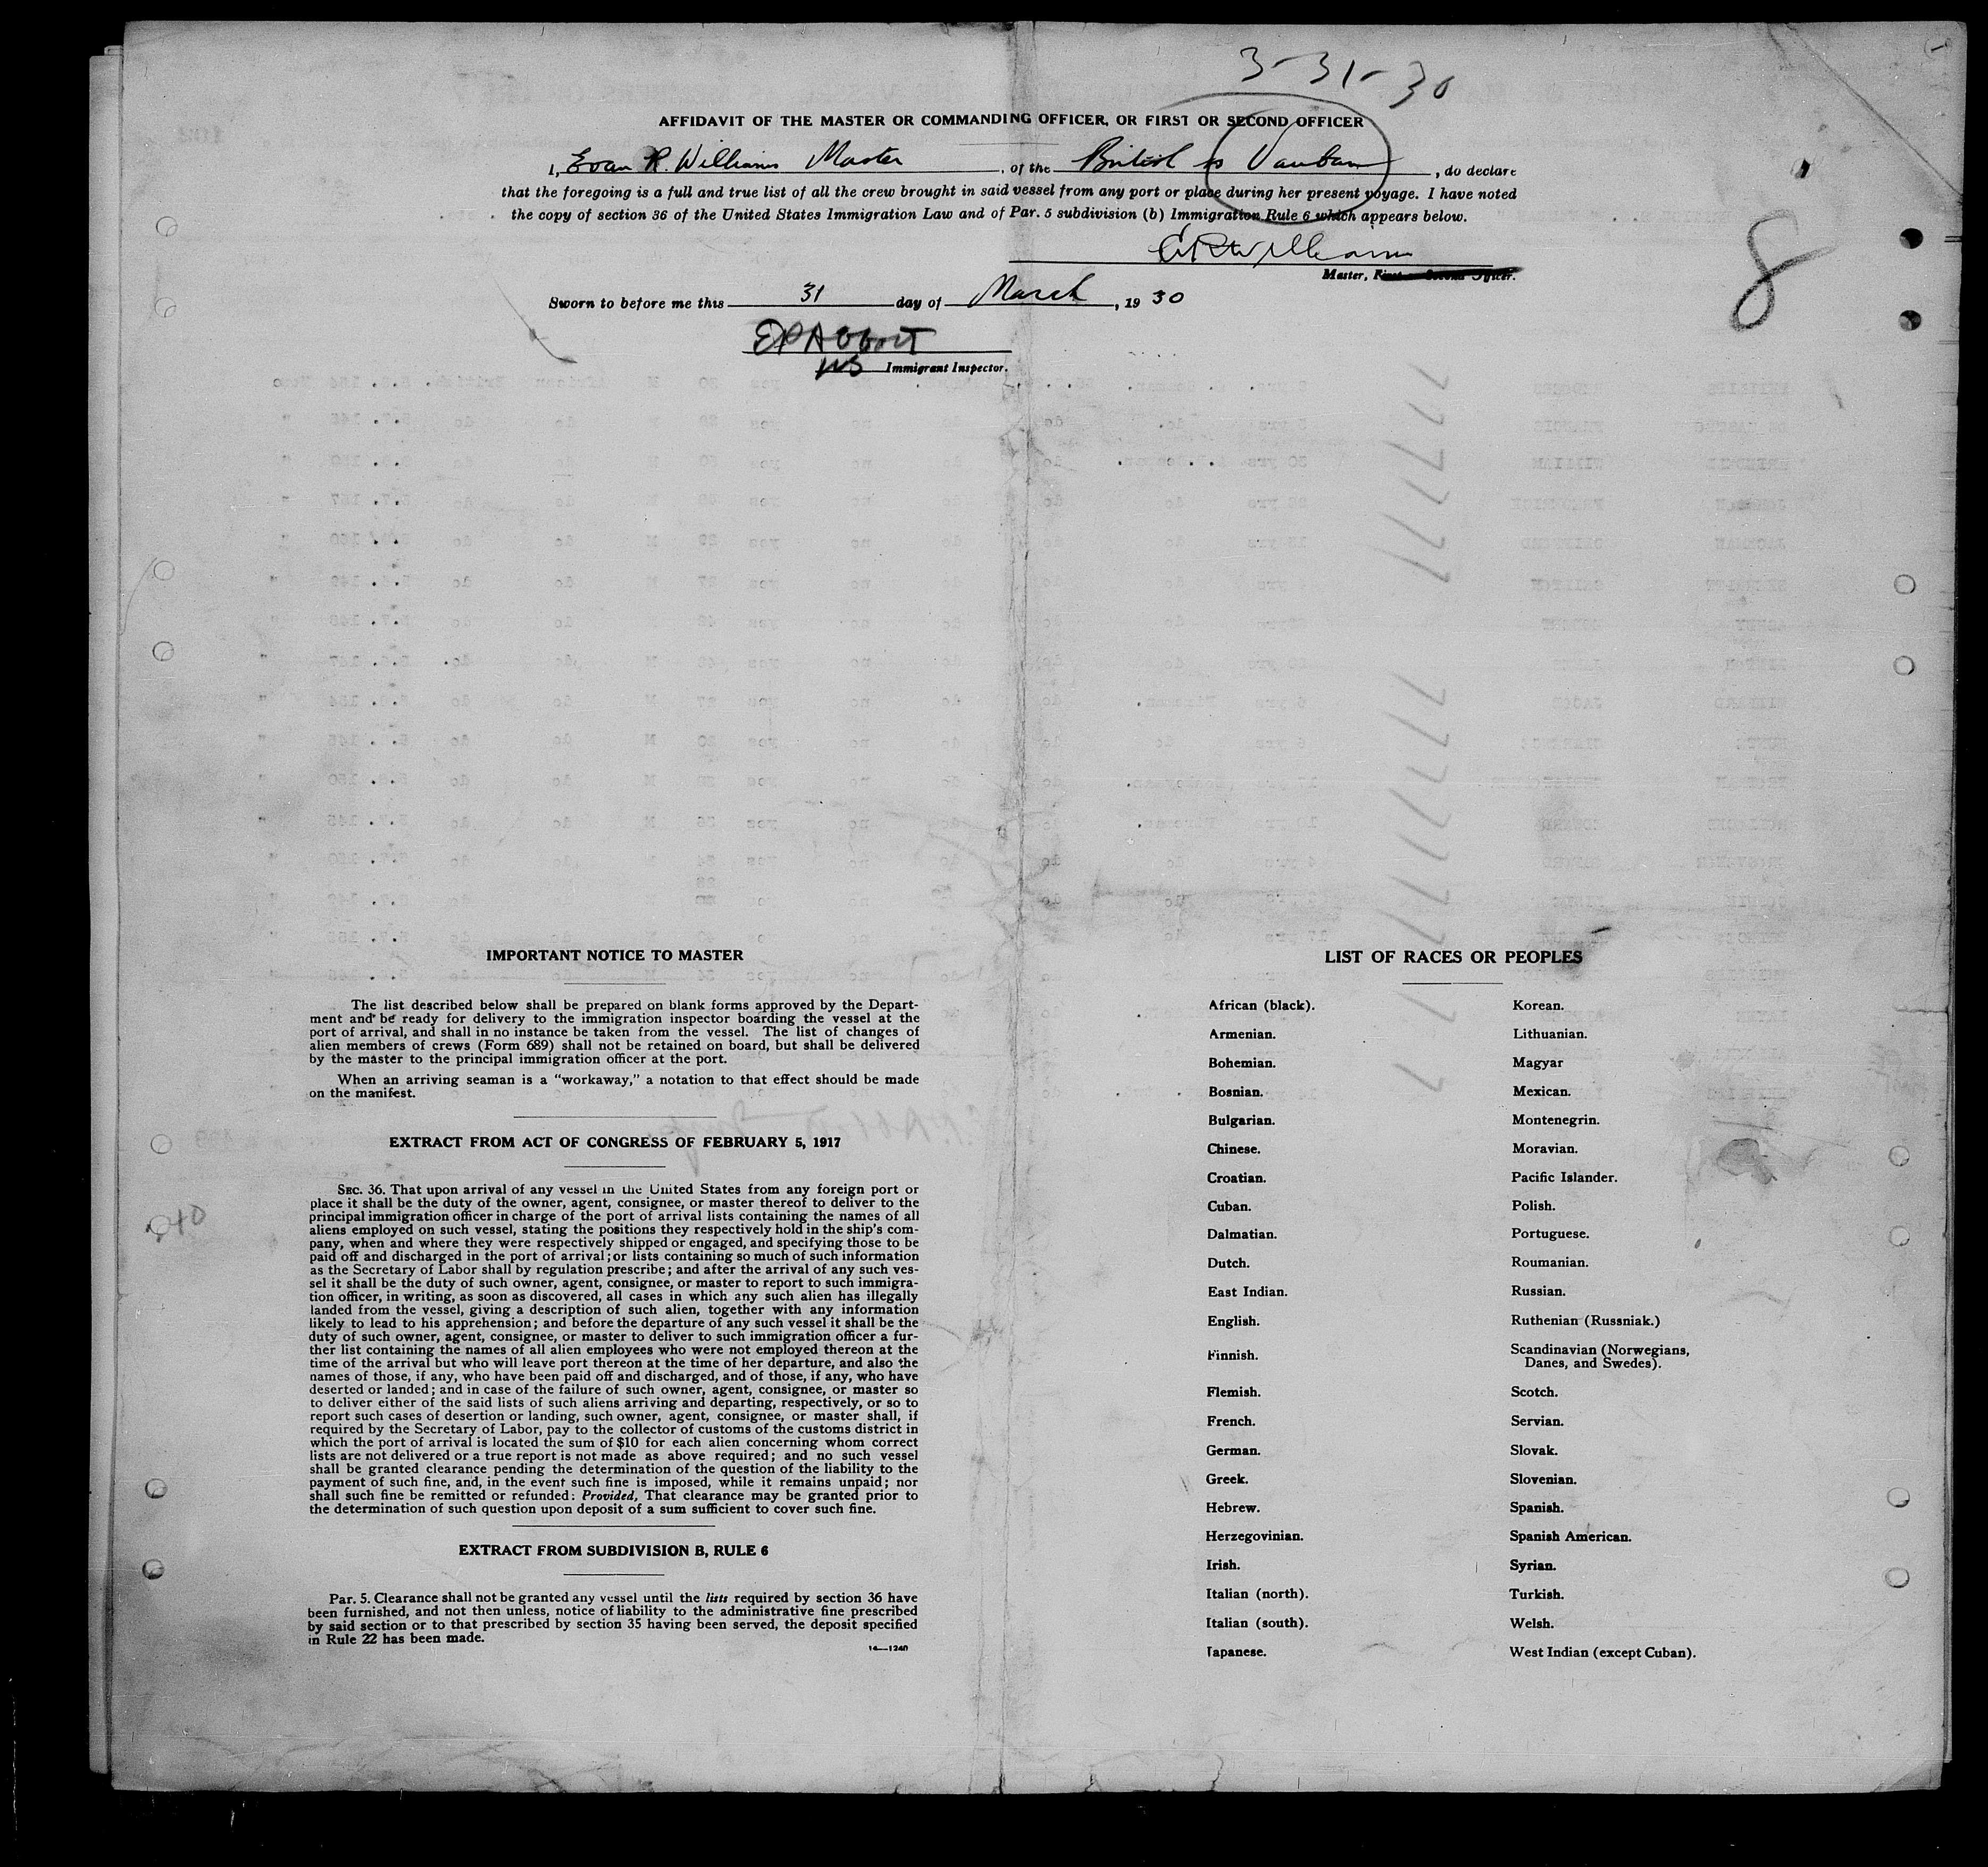 3-31-30
AFFIDAVIT OF THE MASTER OR COMMANDING OFFICER, OR FIRST OR SECOND OFFICER
I, Evan R. Williams Master, of the British ss Vauban, do declare
that the foregoing is a full and true list of all the crew brought in said vessel from any port or place during her present voyage. I have noted
the copy of section 36 of the United States Immigration Law and of Par. 5 subdivision (b) Immigration Rule 6 which appears below.
8
E R Williams
Master, First or Second Officer.
Sworn to before me this 31 day of March, 1930
E P Abbott
Immigrant Inspector.
IMPORTANT NOTICE TO MASTER
The list described below shall be prepared on blank forms approved by the Depart-
ment and be ready for delivery to the immigration inspector boarding the vessel at the
port of arrival, and shall in no instance be taken from the vessel. The list of changes of
alien members of crews (Form 689) shall not be retained on board, but shall be delivered
by the master to the principal immigration officer at the port.
When an arriving seaman is a “workaway,” a notation to that effect should be made
on the manifest.
EXTRACT FROM ACT OF CONGRESS OF FEBRUARY 5, 1917
SEC. 36. That upon arrival of any vessel in the United States from any foreign port or
place it shall be the duty of the owner, agent, consignee, or master thereof to deliver to the
principal immigration officer in charge of the port of arrival lists containing the names of all
aliens employed on such vessel, stating the positions they respectively hold in the ship's com-
pany, when and where they were respectively shipped or engaged, and specifying those to be
paid off and discharged in the port of arrival; or lists containing so much of such information
as the Secretary of Labor shall by regulation prescribe; and after the arrival of any such ves-
sel it shall be the duty of such owner, agent, consignee, or master to report to such immigra-
tion officer, in writing, as soon as discovered, all cases in which any such alien has illegally
landed from the vessel, giving a description of such alien, together with any information
likely to lead to his apprehension; and before the departure of any such vessel it shall be the
duty of such owner, agent, consignee, or master to deliver to such immigration officer a fur-
ther list containing the names of all alien employees who were not employed thereon at the
time of the arrival but who will leave port thereon at the time of her departure, and also the
names of those, if any, who have been paid off and discharged, and of those, if any, who have
deserted or landed; and in case of the failure of such owner, agent, consignee, or master so
to deliver either of the said lists of such aliens arriving and departing, respectively, or so to
report such cases of desertion or landing, such owner, agent, consignee, or master shall, if
required by the Secretary of Labor, pay to the collector of customs of the customs district in
which the port of arrival is located the sum of $10 for each alien concerning whom correct
lists are not delivered or a true report is not made as above required; and no such vessel
shall be granted clearance pending the determination of the question of the liability to the
payment of such fine, and, in the event such fine is imposed, while it remains unpaid; nor
shall such fine be remitted or refunded: Provided, That clearance may be granted prior to
the determination of such question upon deposit of a sum sufficient to cover such fine.
EXTRACT FROM SUBDIVISION B, RULE 6
Par. 5. Clearance shall not be granted any vessel until the lists required by section 36 have
been furnished, and not then unless, notice of liability to the administrative fine prescribed
by said section or to that prescribed by section 35 having been served, the deposit specified
in Rule 22 has been made.
14—1240
LIST OF RACES OR PEOPLES
African (black).
Armenian.
Bohemian.
Bosnian.
Bulgarian.
Chinese.
Croatian.
Cuban.
Dalmatian.
Dutch.
East Indian.
English.
Finnish.
Flemish.
French.
German.
Greek.
Hebrew.
Herzegovinian.
Irish.
Italian (north).
Italian (south).
Japanese.
Korean.
Lithuanian.
Magyar
Mexican.
Montenegrin.
Moravian.
Pacific Islander.
Polish.
Portuguese.
Roumanian.
Russian.
Ruthenian (Russniak.)
Scandinavian (Norwegians,
Danes, and Swedes).
Scotch.
Servian.
Slovak.
Slovenian.
Spanish.
Spanish American.
Syrian.
Turkish.
Welsh.
West Indian (except Cuban).